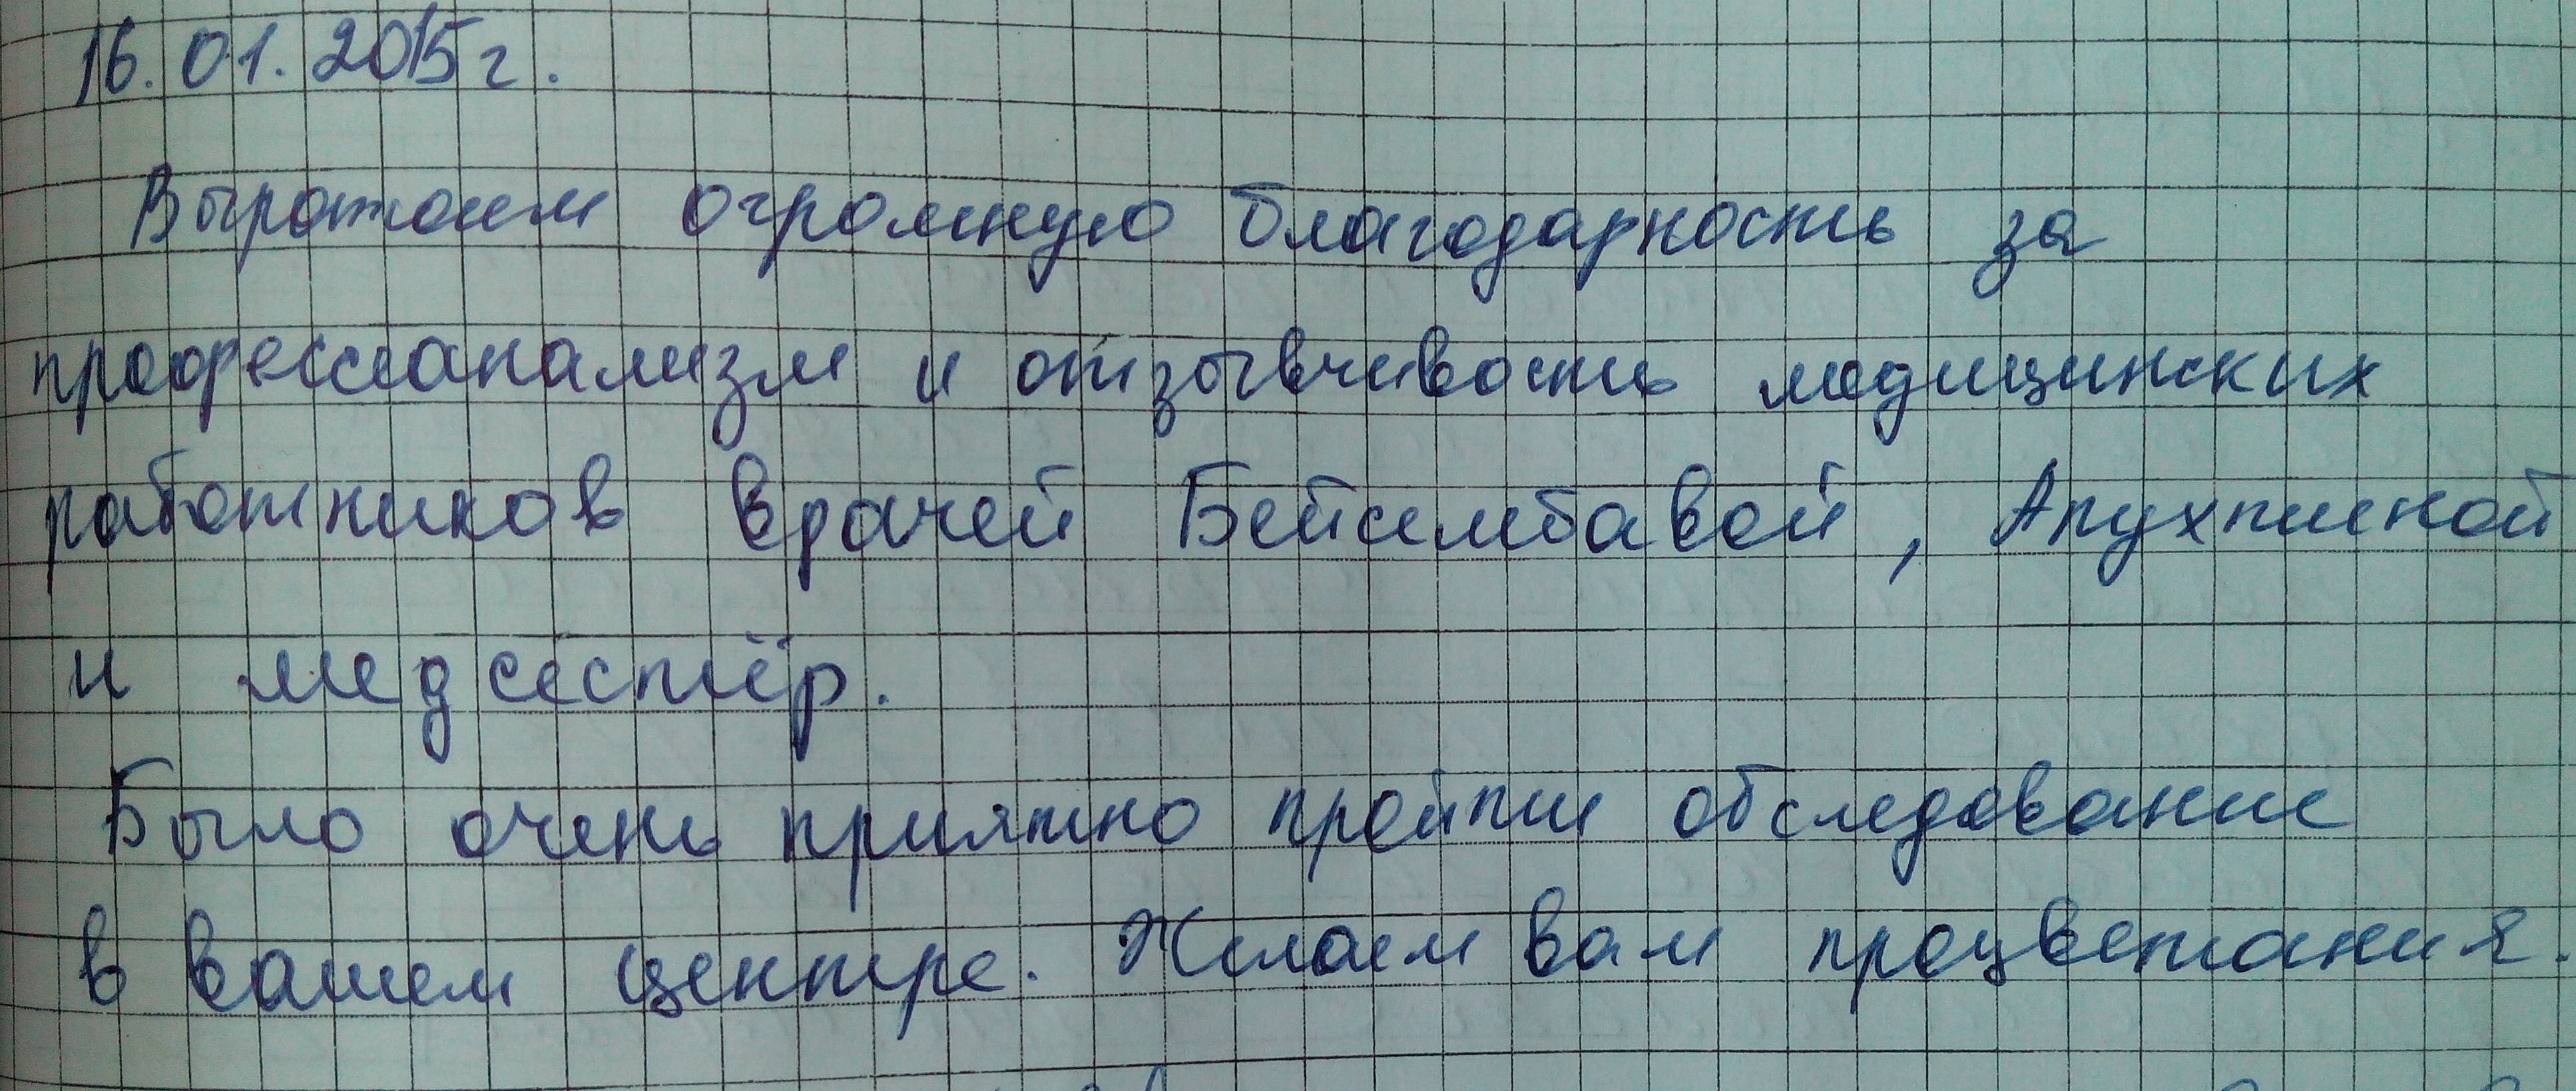 16.01.2015г.
Выражаем огромную благодарность за
профессианализм и отзывчивость медицинских
работников врачей Бейсимбавой, Апухтиной
и медсестёр.
Было очень приятно пройти обследование
в вашем центре. Желаем вам процветания.